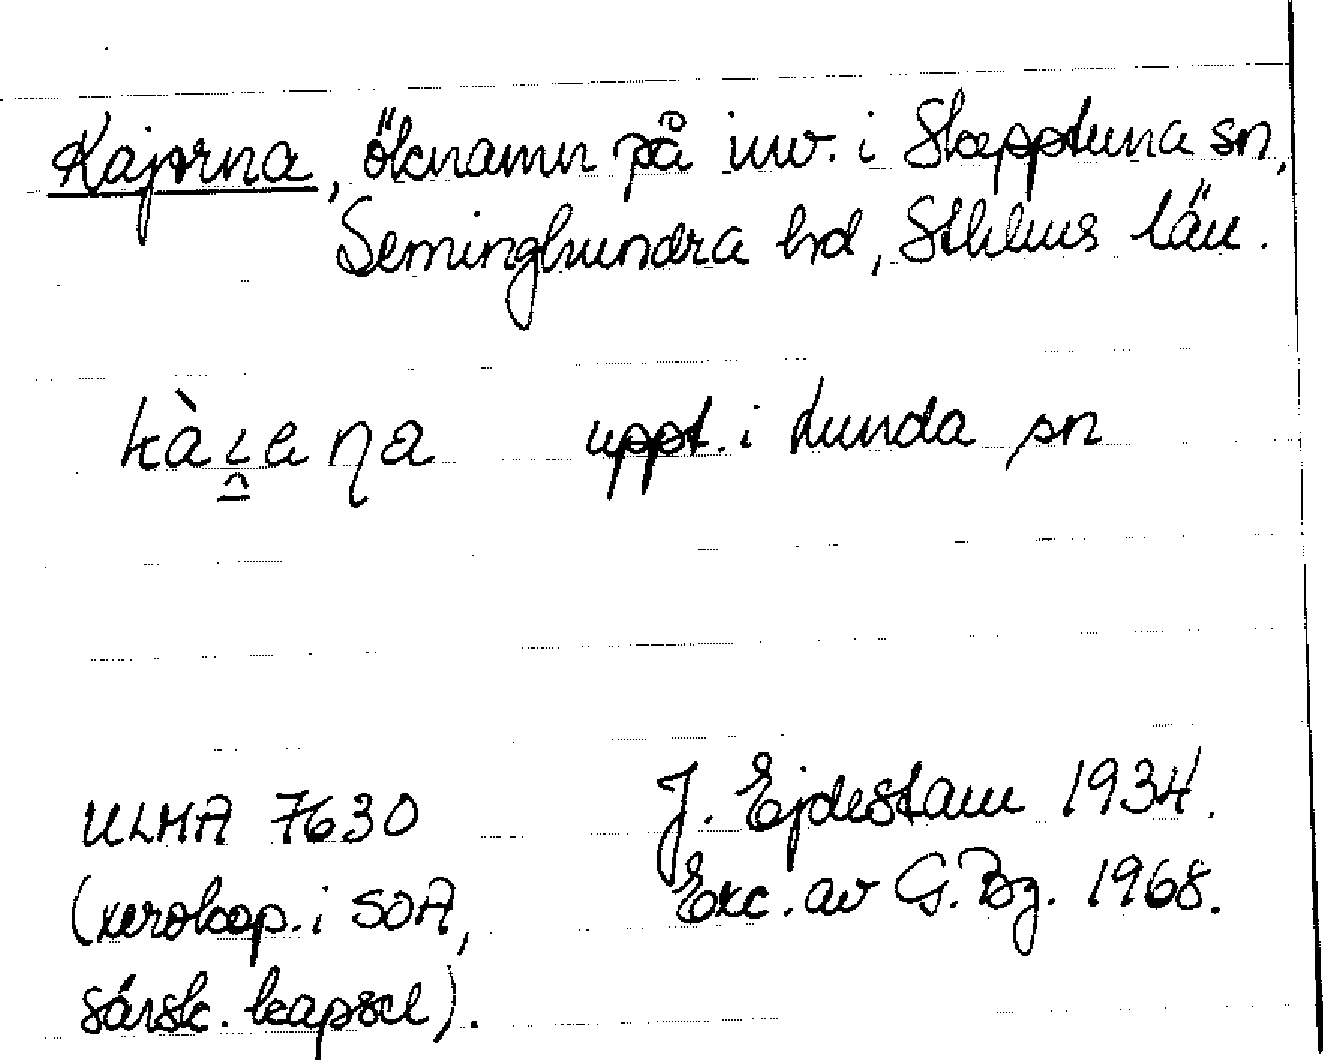 Kajorna, öknamn på inv. i Skepptuna sn,
Seminghundra hd, Sthlms län.
uppt. i Lunda sn
ULMA 7630
J. Ejdestam 1934.
(xerokop. i SOA,
Exc. av G. Bg. 1968.
särsk. kapsel).